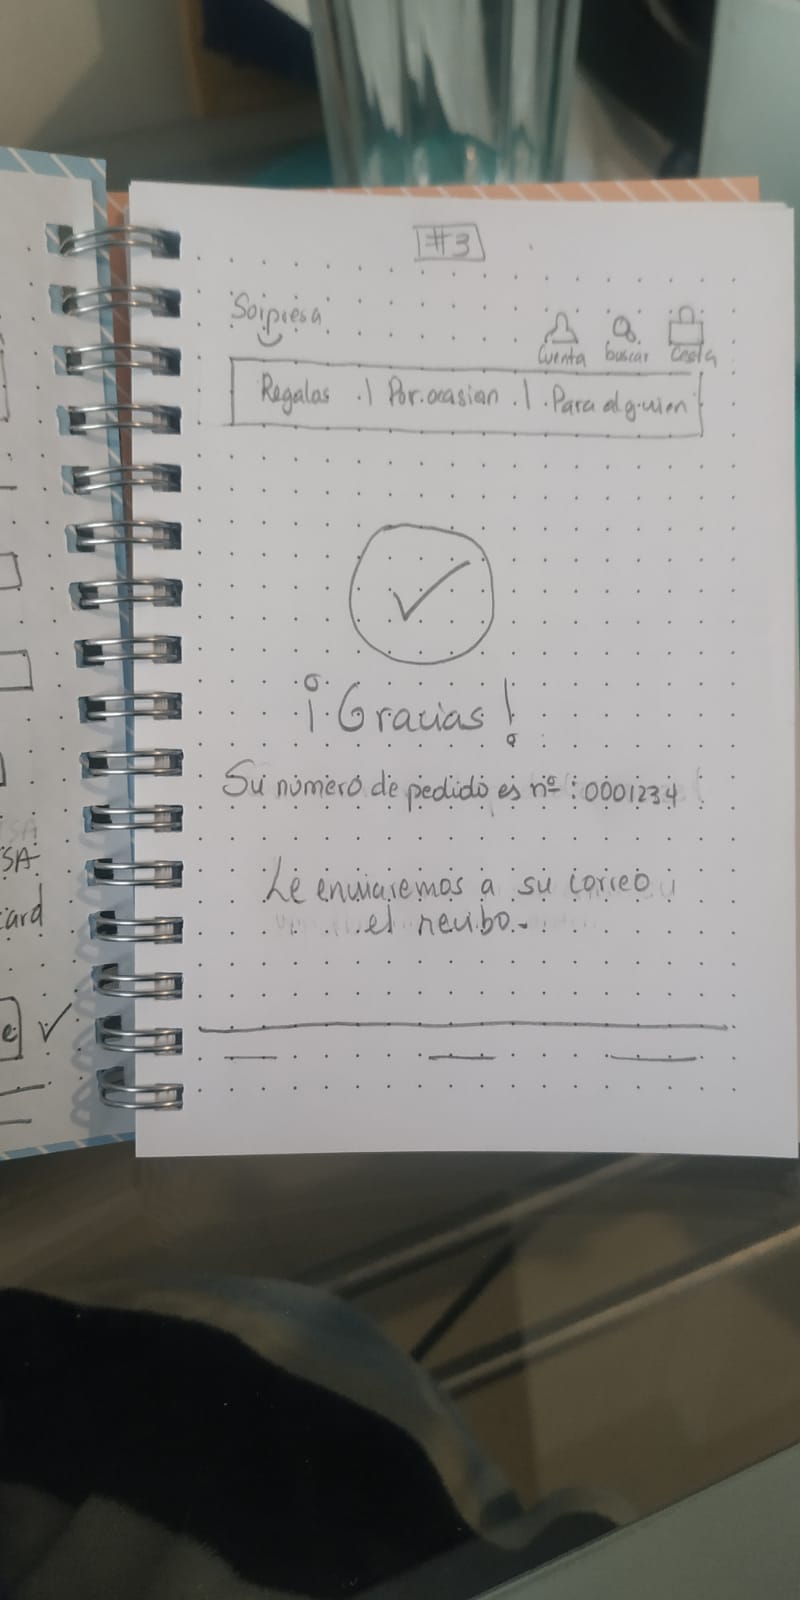 #3
Sorpresa
Cuenta buscar Cesta
Regalos | Por ocasian | Para alguien
¡Gracias!
Su número de pedido es nº: 0001234
Le enviaremos a su correo
el recibo.
SA
card
e